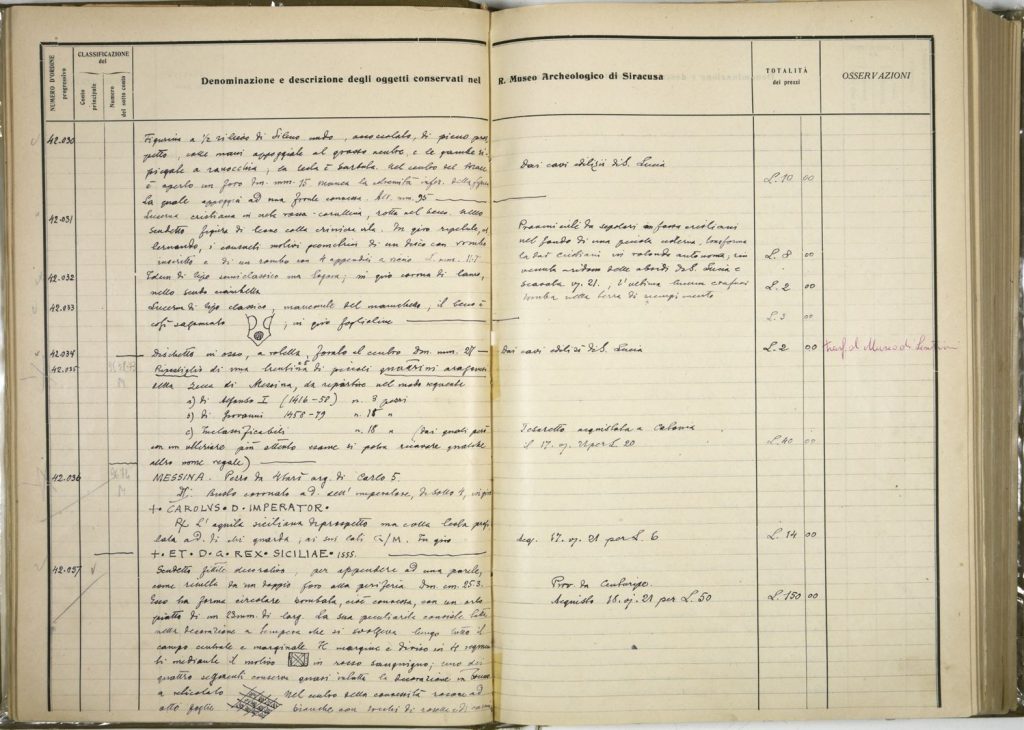 NUMERO D'ORDINE progressivo
CLASSIFICAZIONE del
Conto principale
Numero del sotto conto
Denominazione e descrizione degli oggetti conservati nel R. Museo Archeologico di Siracusa
TOTALITÀ dei prezzi
OSSERVAZIONI
42.030
Figurina a 1/2 rilievo di Sileno nudo, accoccolato, di pieno pros
petto, colle mani appoggiate al grosso ventre, e le gambe ri
piegate a ranocchia; la testa è barbuta. Nel centro del
è aperto un foro dm. mm. 15 manca la
La quale appoggia ad una fronte convessa. Alt. mm. 95
Dai cavi edilizi di S. Lucia
L. 10 00
42.031
Lucerna cristiana in nota rossa corallina, rotta nel becco, nello
scudetto figura di leone colla criniera. In giro ripetuto, al
ternando, i consueti motivi geometrici di un disco con rombo
inscritto e di un rombo con 4 appendici a L. mm. 117
Provenienti da sepolcri cristiani
nel fondo di una piccola cisterna, trasforma
ta dai cristiani in rotonda
venuta a ridosso delle absidi di S. Lucia e
scavata 21, l'ultima
tomba nella terra di riempimento
L. 8 00
42.032
Idem di tipo semiclassico ma; in giro corona di lauro,
nello scudo
L. 2 00
42.033
Lucerna di tipo classico, mancante del manichetto, il becco è
così sagomato ; in giro foglioline
L. 3 00
42.034
Dischetto in osso, a rotella, forato al centro Dm. mm. 27
Dai cavi edilizi di S. Lucia
L. 2 00
42.035
Ripostiglio di una trentina di piccoli quattrini aragonesi
della Zecca di Messina, da repartire nel modo seguente
a) di Alfonso I (1416-58) n. 3 pezzi
b) di Giovanni 1458-79 n. 15 "
c) Inclassificabili n. 18 " (dai quali però
con un ulteriore più attento esame si potrà ricavare qualche
altro nome regale)
Tesoretto acquistato a Catania
il 17. 21 per L 20
L. 40 00
42.036
MESSINA. Pezzo da 4 tarì arg. di Carlo 5.
D/: Busto coronato a d. dell'imperatore, di sotto 4, in giro
+ CAROLVS · D · IMPERATOR ·
R/ L'aquila siciliana di prospetto ma colla testa
a d. di chi guarda; ai cui lati C/M. In giro
+ · ET · D · G · REX · SICILIAE · 1555.
Acq. 17. 21 per L. 6
L. 14 00
42.037
Scudetto fittile decorativo, per appendere ad una parete,
come risulta da un doppio foro alla periferia Dm. cm. 25.3.
Esso ha forma circolare bombata, cioè convessa, con un orlo
piatto di un 23mm. di larg. La sua peculiarità consiste tutta
nella decorazione a tempera che si svolgeva lungo tutto il
campo centrale e marginale. Il margine è diviso in 4 segmen
ti mediante il motivo in rosso sanguigno; uno dei
quattro segmenti conserva quasi intatta la decorazione in
a reticolato Nel centro della convessità rosone ad
otto foglie bianche con tocchi di rosso e di
Prov. da Centuripe.
Acquisto 18. 21 per L. 50
L. 150 00